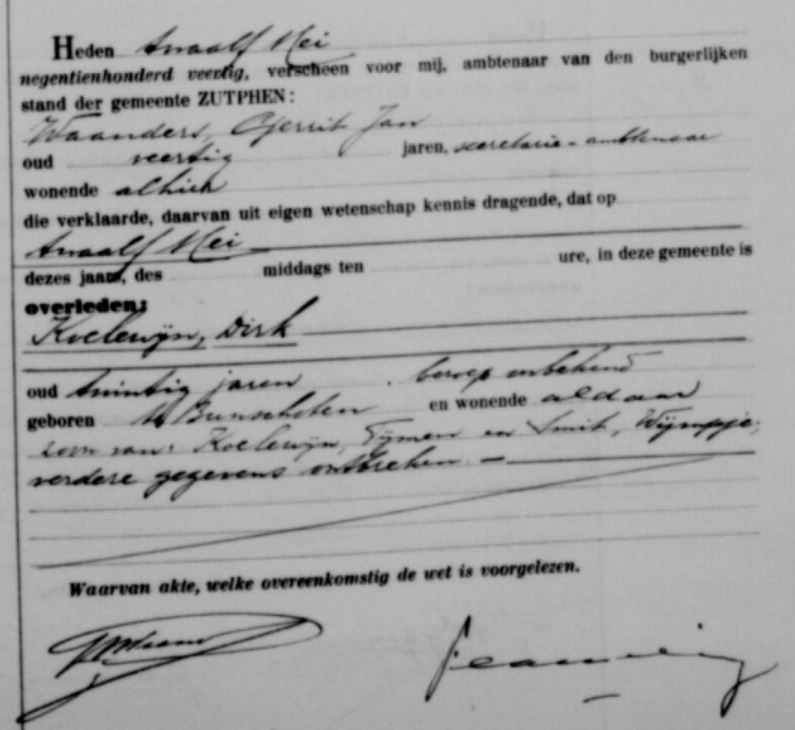 Heden twaalf Mei
negentienhonderd veertig, verscheen voor mij, ambtenaar van den burgerlijken
stand der gemeente ZUTPHEN:
Waanders, Gerrit Jan
oud veertig jaren, secretarie-ambtenaar
wonende alhier
die verklaarde, daarvan uit eigen wetenschap kennis dragende, dat op
twaalf Mei
dezes jaars, des middags ten ure, in deze gemeente is
overleden:
Koelewijn, Dirk
oud twintig jaren, beroep onbekend
geboren te Bunschoten en wonende aldaar
zoon van: Koelewijn, Tijmen en Smit, Wijmpje;
verdere gegevens ontbreken. —
Waarvan akte, welke overeenkomstig de wet is voorgelezen.